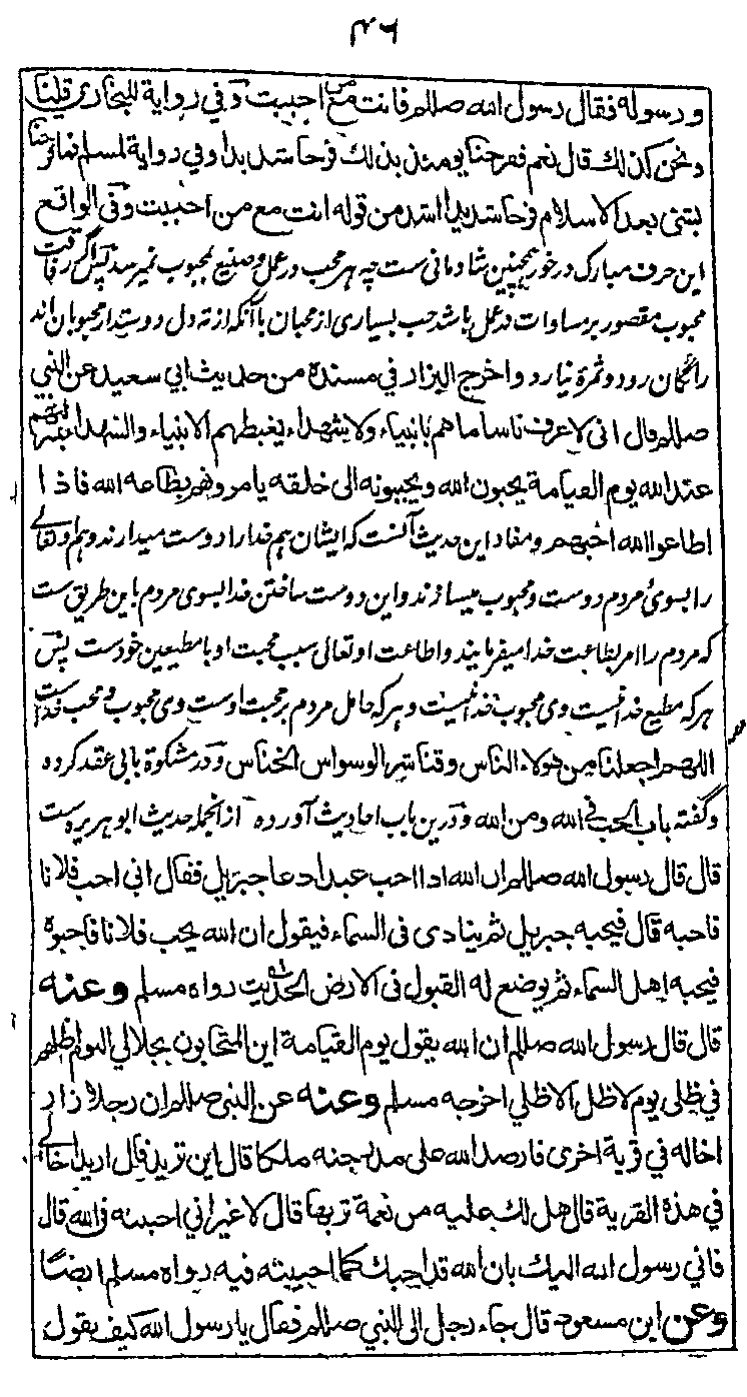 ۴۶
ورسوله فقال رسول الله صللم فانت مع من احببت وفي رواية للبخاري قلنا
ونحن كذلك قال نعم ففرحنا يومئذ بذلك فرحا شديدا وفي رواية لمسلم فما فرحنا
بشئ بعد الاسلام فرحا شديدا اشد من قوله انت مع من احببت وفی الواقع
این حرف مبارک درخور همچنین شادمانی ست چه هر محب در عمل و صنیع بمحبوب نمیرسد پس اگر رفاقت
محبوب مقصور بر مساوات در عمل باشد حب بسیاری از محبان با آنکه از ته دل دوستدار محبوبان اند
رائگان رود و ثمرهٔ نیارد واخرج البزار في مسنده من حديث ابي سعيد عن النبي
صللم قال اني لاعرف ناسا ما هم بانبياء ولا شهداء يغبطهم الانبياء والشهداء بمنزلتهم
عند الله يوم القيامة يحبون الله ويحببونه الى خلقه يامرونهم بطاعه الله فاذا
اطاعوا الله احبهم ومفاد این حدیث آنست که ایشان هم خدا را دوست میدارند و هم او تعالے
را بسوئ مردم دوست و محبوب میسازند و این دوست ساختن خدا بسوی مردم باین طریق ست
که مردم را امر بطاعت خدا میفرمایند و اطاعت او تعالی سبب محبت او با مطیعین خودست پس
هرکه مطیع خدا نیست وی محبوب خدا نیست و هرکه حامل مردم بر محبت اوست وی محبوب و محب خداست
اللهم اجعلنا من هولاء الناس وقنا شر الوسواس الخناس و در مشکوة بابی عقد کرده
و گفته باب الحب في الله ومن الله و درین باب احادیث آورده از انجمله حدیث ابو هریره ست
قال قال رسول الله صللم ان الله اذا احب عبدا دعا جبريل فقال اني احب فلانا
فاحبه قال فيحبه جبريل ثم ينادى فى السماء فيقول ان الله يحب فلانا فاحبوه
فيحبه اهل السماء ثم يوضع له القبول فى الارض الحديث رواه مسلم وعنه
قال قال رسول الله صللم ان الله يقول يوم القيامة اين المتحابون بجلالي اليوم اظلهم
في ظلى يوم لاظل الا ظلي اخرجه مسلم وعنه عن النبي صللم ان رجلا زار
اخاله في قرية اخرى فارصد الله على مدرجته ملكا قال اين تريد قال اريد اخالے
في هذه القرية قال هل لك عليه من نعمة تربها قال لا غير اني احببته في الله قال
فاني رسول الله اليك بان الله قد احبك كما احببته فيه رواه مسلم ايضا
وعن ابن مسعود قال جاء رجل الى النبي صللم فقال يا رسول الله كيف يقول